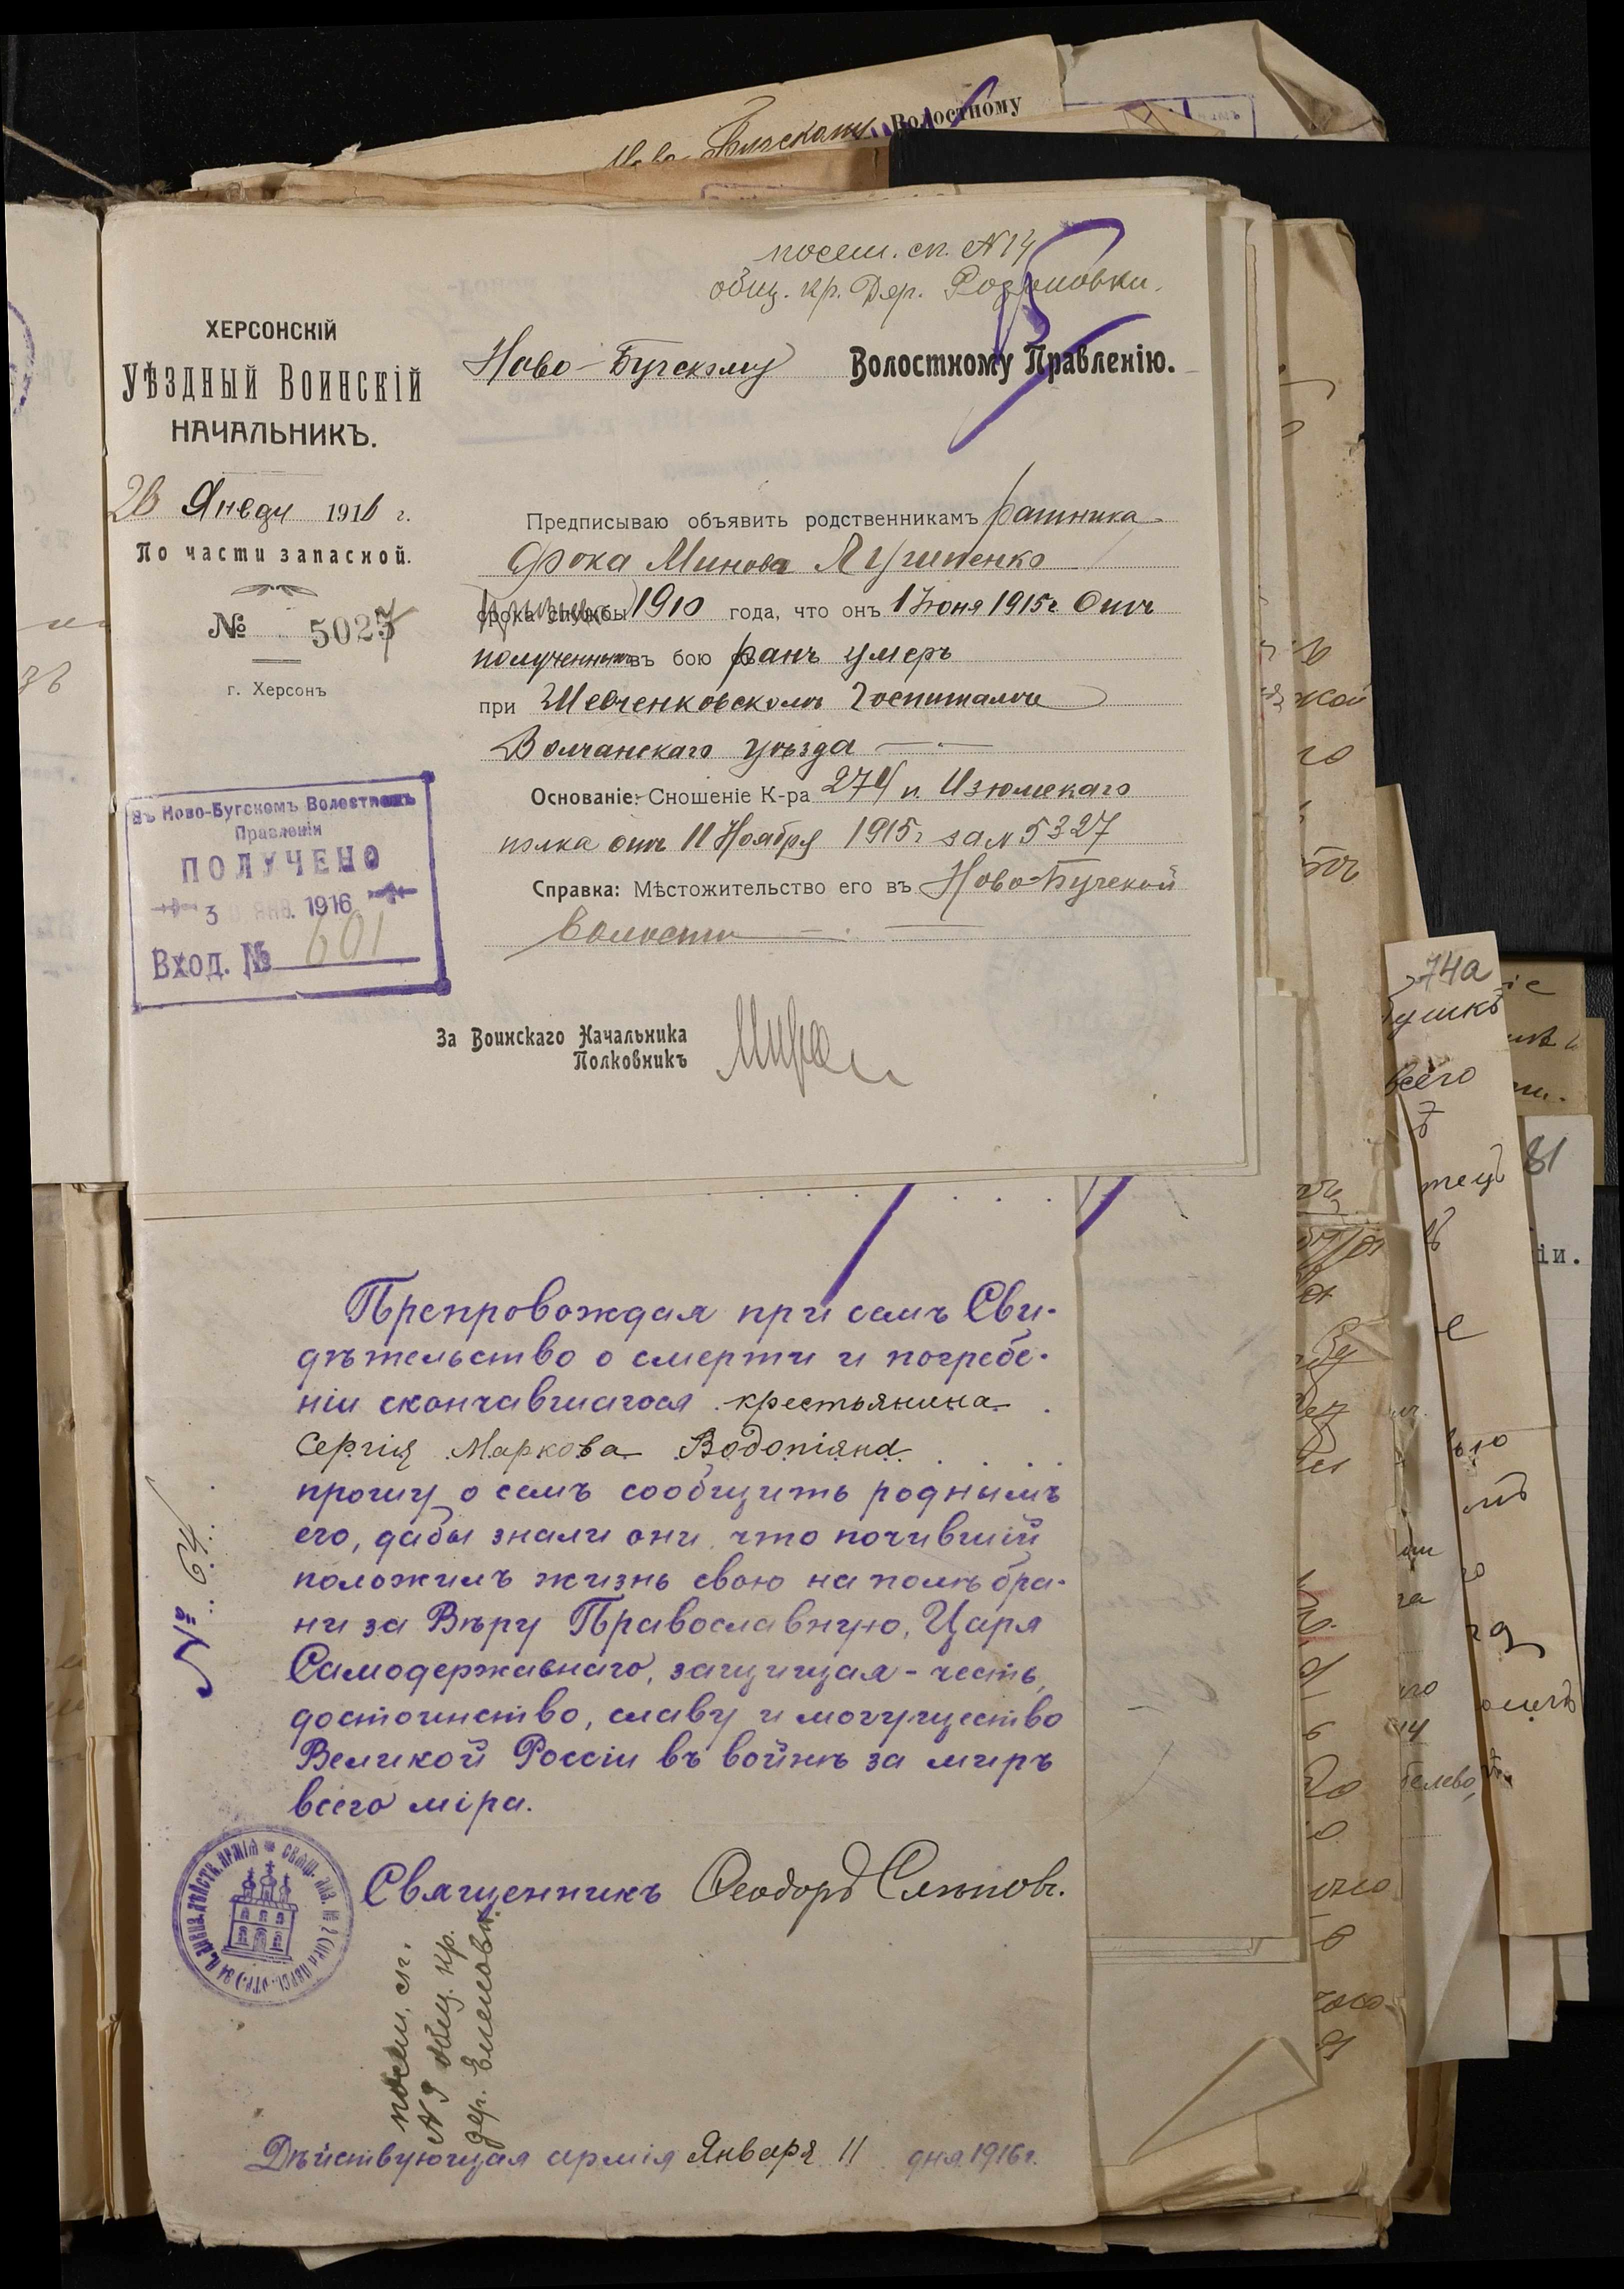 Волостному
посем. сп. №14
общ. кр. Дер. Розановки.
ХЕРСОНСКІЙ
УѢЗДНЫЙ ВОИНСКІЙ
НАЧАЛЬНИКЪ.
Ново-Бугскому Волостному Правленію.
Январ 1916 г.
По части запасной.
№ 5027
г. Херсонъ
Предписываю объявить родственникамъ ратника
Фока Минова Лушпенко
срока службы 1910 года, что онъ 1 Іюня 1915г Отъ
полученныхъ въ бою ранъ умеръ
при Шевченковскомъ Госпиталѣ
Волчанскаго уѣзда
Основаніе: Сношеніе К-ра 274 п. Изюмскаго
полка отъ 11 Ноября 1915г за № 5327
Справка: Мѣстожительство его въ Ново-Бугской
волости
Въ Ново-Бугскомъ Волостномъ
Правленіи
ПОЛУЧЕНО
30 ЯНВ. 1916
Вход. № 601
За Воинскаго Начальника
Полковникъ
74а
всего
81
іи.
Препровождая при семъ Сви-
дѣтельство о смерти и погребе-
ніи скончавшагося крестьянина
Сергія Маркова Водопіяна
прошу о семъ сообщить роднымъ
его, дабы знали они, что почившій
положилъ жизнь свою на полѣ бра-
ни за Вѣру Православную, Царя
Самодержавнаго, защищая - честь,
достоинство, славу и могущество
Великой Россіи въ войнѣ за миръ
всего міра.
№ 64
Священникъ Ѳеодоръ Слѣповъ.
посем. сп.
№ 9 общ. кр.
дер. Еленовки.
Дѣйствующая армія Января 11 дня 1916г.